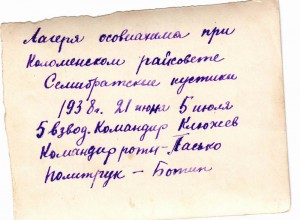 Лагеря осовиахима при
Коломенском райсовете
Семибратские пустики
1938г. 21 июня 5 июля
5 взвод. Командир Клюхеев
Командир роты - Пасько
политрук - Ботин